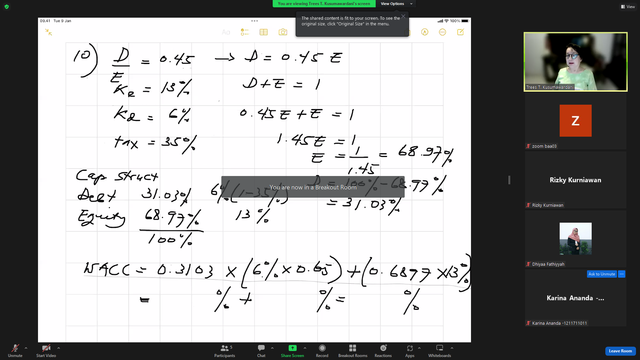 You are viewing Trees T. Kusumawardani's screen
View Options
The shared content is fit to your screen. To see the original size, click "Original Size" in the menu.
09.41 Tue 9 Jan
10) D/E = 0.45 → D = 0.45 E
Ke = 13% D+E = 1
Kd = 6% 0.45E + E = 1
tax = 35% 1.45E = 1
E = 1/1.45 = 68.97%
Cap Struct
D = 100% - 68.97%
Debt 31.03% 6%(1-35%) = 31.03%
You are now in a Breakout Room
Equity 68.97% 13%
100%
WACC = 0.3103 × (6% × 0.65) + (0.6897 × 13%)
= % + % = %
Trees T. Kusumawardani
Z
zoom baa03
Rizky Kurniawan
Rizky Kurniawan
Dhijaa Fathiyyah
Ask to Unmute
Karina Ananda - ...
Karina Ananda - 1211711011
Unmute
Start Video
Participants
Chat
Share Screen
Record
Breakout Rooms
Reactions
Apps
Whiteboards
Leave Room